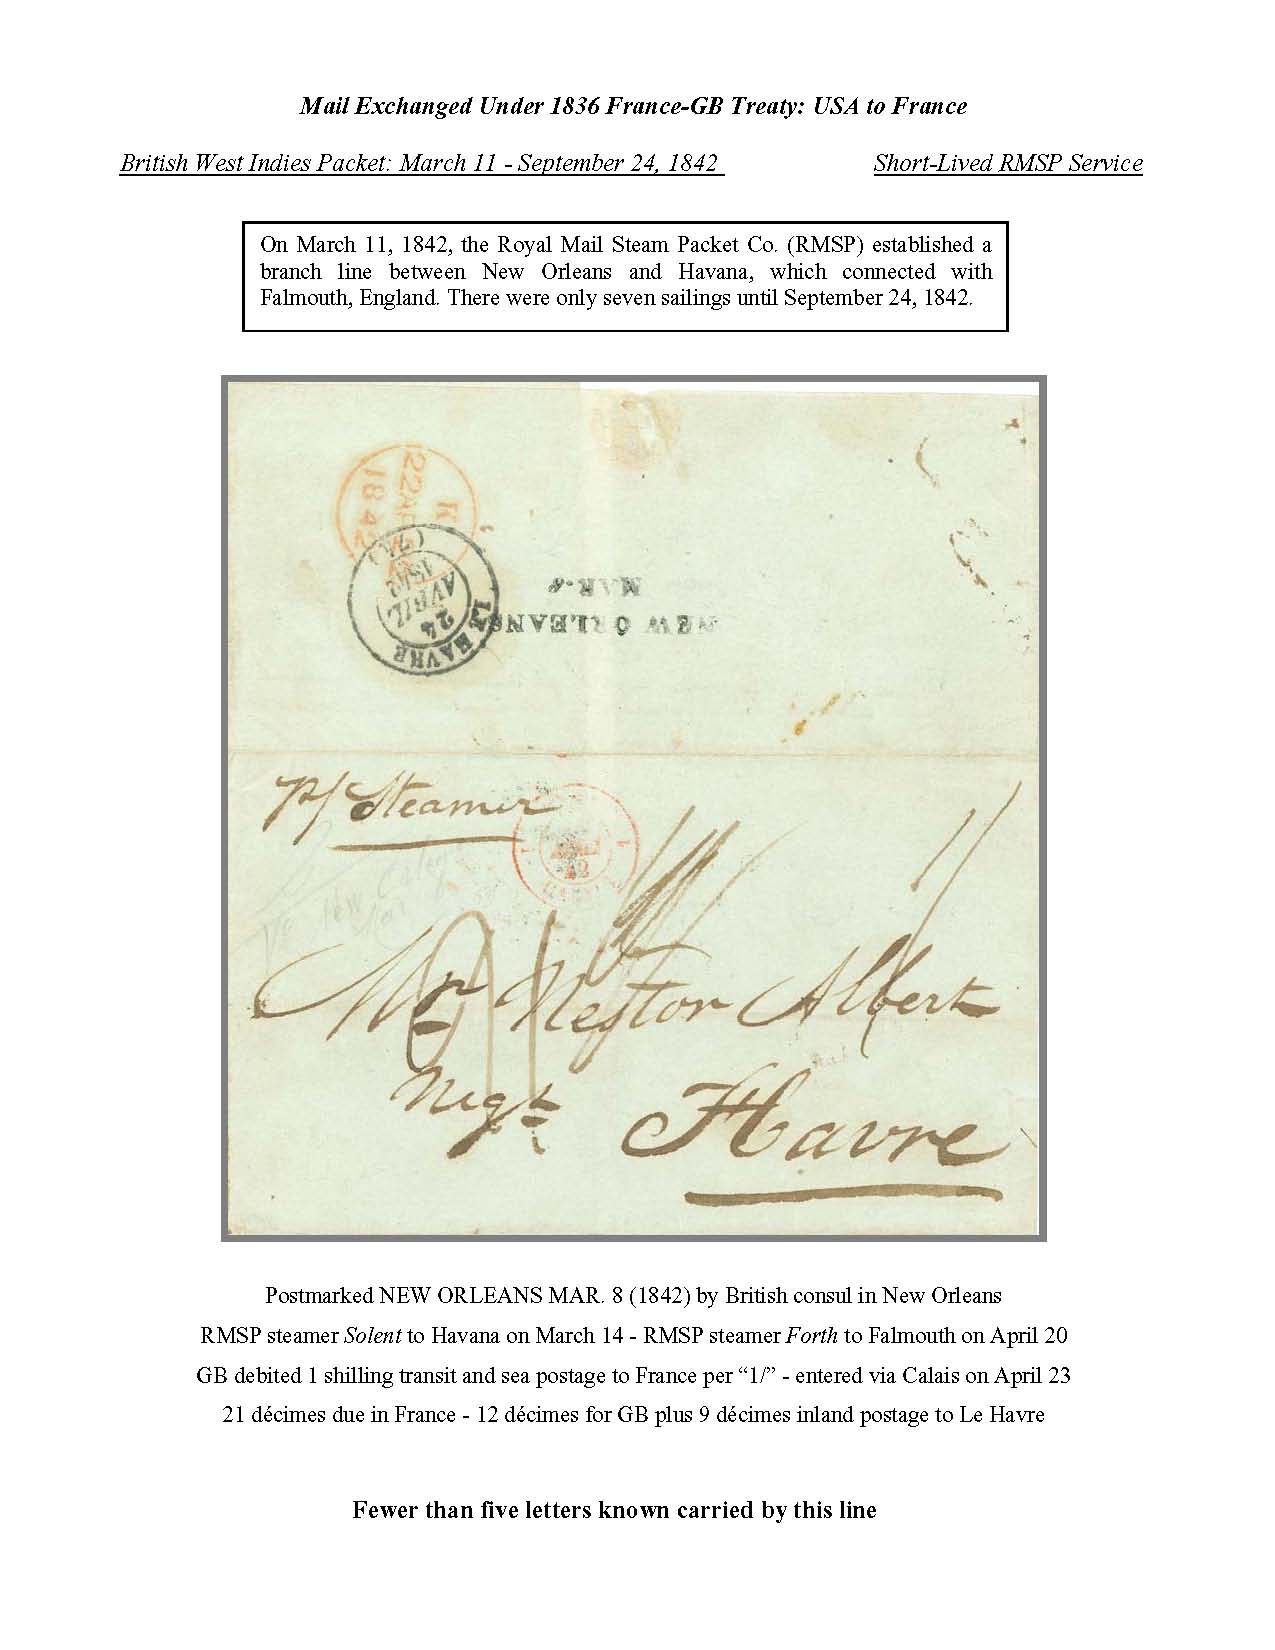 Mail Exchanged Under 1836 France-GB Treaty: USA to France
British West Indies Packet: March 11 - September 24, 1842 Short-Lived RMSP Service
On March 11, 1842, the Royal Mail Steam Packet Co. (RMSP) established a
branch line between New Orleans and Havana, which connected with
Falmouth, England. There were only seven sailings until September 24, 1842.
22 AP
1842
LE HAVRE
24
AVRIL
1842
MAR. 8
NEW ORLEANS
P/ Steamer
1/
21
Mr Nestor Albert
Negt
Havre
Postmarked NEW ORLEANS MAR. 8 (1842) by British consul in New Orleans
RMSP steamer Solent to Havana on March 14 - RMSP steamer Forth to Falmouth on April 20
GB debited 1 shilling transit and sea postage to France per “1/” - entered via Calais on April 23
21 décimes due in France - 12 décimes for GB plus 9 décimes inland postage to Le Havre
Fewer than five letters known carried by this line